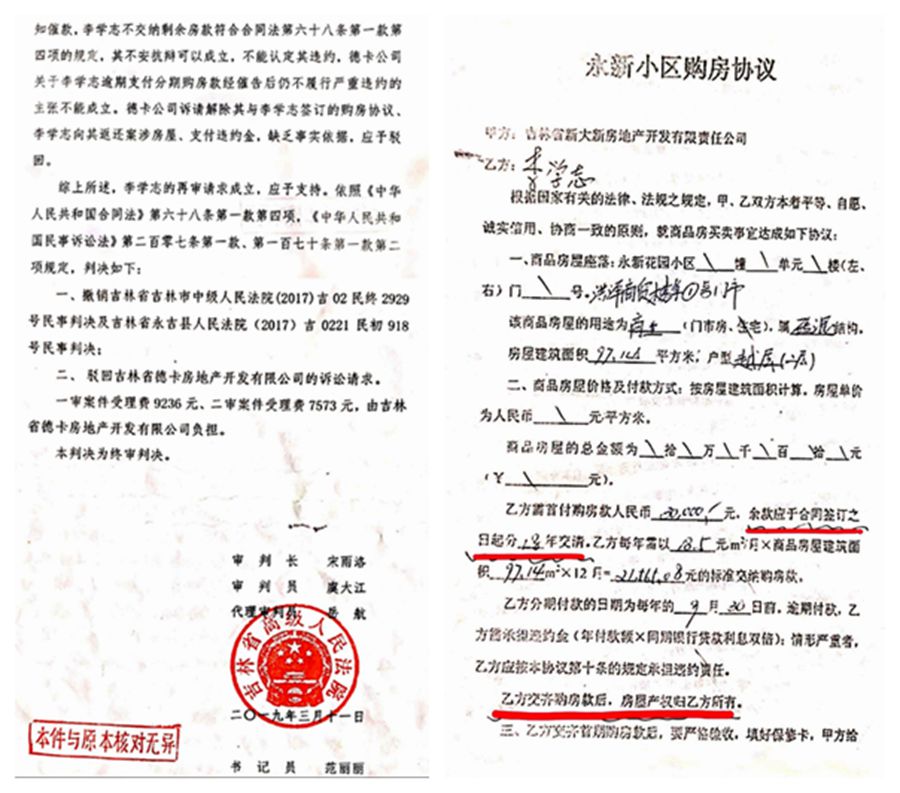 知催款，李学志不交纳剩余房款符合合同法第六十八条第一款第
四项的规定，其不安抗辩可以成立，不能认定其违约，德卡公司
关于李学志逾期支付分期购房款经催告后仍不履行严重违约的
主张不能成立。德卡公司诉请解除其与李学志签订的购房协议、
李学志向其返还案涉房屋、支付违约金，缺乏事实依据，应予驳
回。
综上所述，李学志的再审请求成立，应予支持。依照《中华
人民共和国合同法》第六十八条第一款第四项，《中华人民共和
国民事诉讼法》第二百零七条第一款、第一百七十条第一款第二
项规定，判决如下：
一、撤销吉林省吉林市中级人民法院(2017)吉 02 民终 2929
号民事判决及吉林省永吉县人民法院（2017）吉 0221 民初 918
号民事判决；
二、驳回吉林省德卡房地产开发有限公司的诉讼请求。
一审案件受理费 9236 元、二审案件受理费 7573 元，由吉林
省德卡房地产开发有限公司负担。
本判决为终审判决。
审 判 长 宋雨洛
审 判 员 虞大江
代理审判员 岳 航
吉林省高级人民法院
二〇一九年三月十一日
本件与原本核对无异
书 记 员 范丽丽
永新小区购房协议
甲方：吉林省新大新房地产开发有限责任公司
乙方：李学志
根据国家有关的法律、法规之规定，甲、乙双方本着平等、自愿、
诚实信用、协商一致的原则，就商品房买卖事宜达成如下协议：
一、商品房屋座落：永新花园小区 \ 幢 \ 单元 \ 楼(左、
右）门 \ 号。
该商品房屋的用途为 商业 （门市房、住宅），属 结构，
房屋建筑面积 97.14 平方米，户型
二、商品房屋价格及付款方式：按房屋建筑面积计算，房屋单价
为人民币 \ 元平方米。
商品房屋的总金额为 \ 拾 \ 万 \ 千 \ 百 \ 拾 \ 元
（￥ \ 元）。
乙方需首付购房款人民币 20,000 元，余款应于合同签订之
日起分 18 年交清。乙方每年需以 18.5 元m²月×商品房屋建筑面
积 97.14 m²×12 月= 元的标准交纳购房款。
乙方分期付款的日期为每年的 9 月 30 日前，逾期付款，乙
方需承担违约金（年付款额×同期银行贷款利息双倍）；情形严重者，
乙方应按本协议第十条的规定承担违约责任。
乙方交齐购房款后，房屋产权归乙方所有。
三、乙方交齐首期购房款后，要严格验收，填好保修卡，甲方给